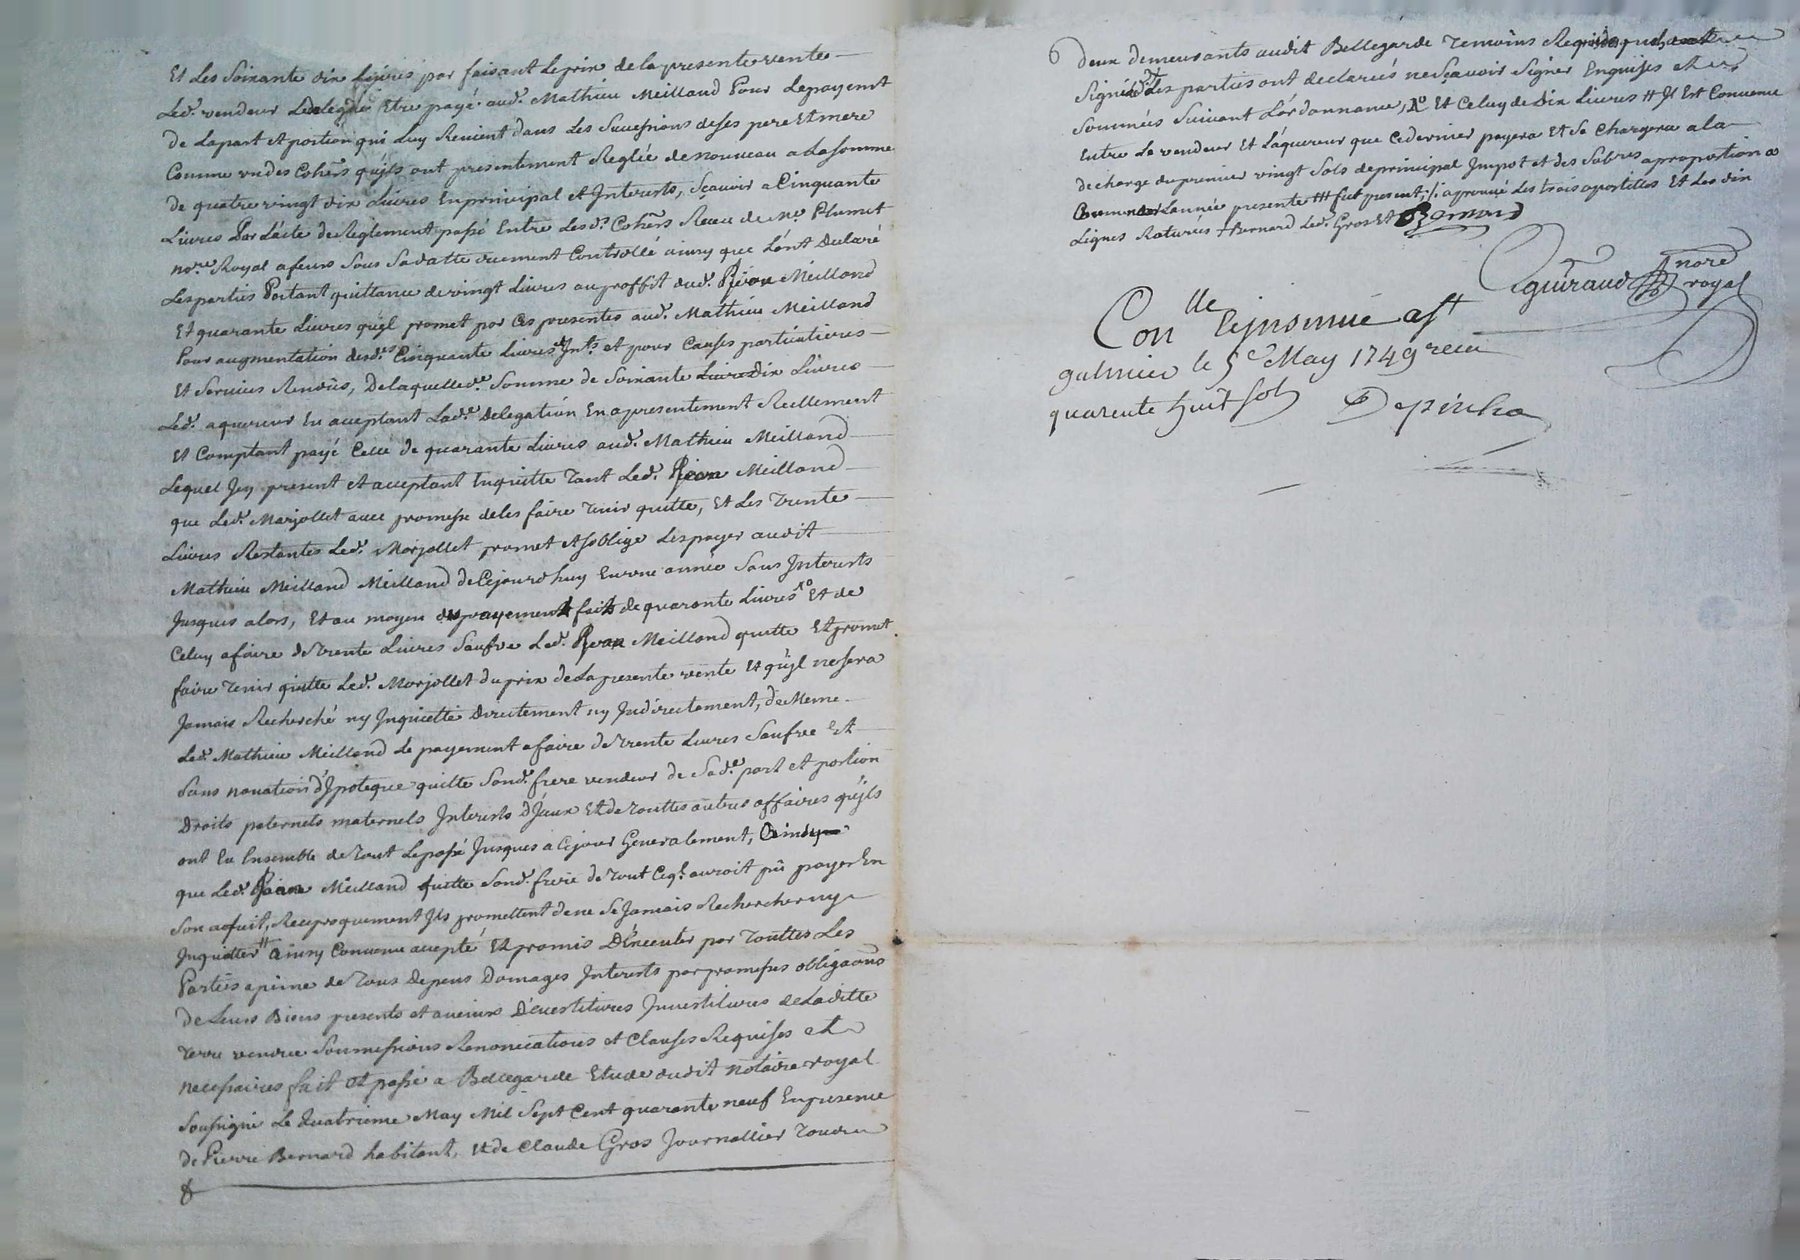 Et Les Soixante dix Livres por faisant Le prix de la presente vente
Led. vendeur Le delegue Etre payé aud. Mathieu Meilland Pour Le payemt
de La part et portion qui Luy Revient dans Les Successions de ses pere Et mere
Comme un des Cohers qu'jls ont presentement Reglée de nouveau a La somme
de quatre vingt dix Livres En principal et Jnterests, Sçavoir a Cinquante
Livres Par L'acte de Reglement passé Entre Lesd. Cohers Receu de Me Plumet
nore Royal a feurs Sous Sa datte duement Controllé ainsy que L'ont Declaré
Les parties Portant quittance de vingt Livres au proffit dud. Jean Meilland
Et quarante Livres qu'jl promet por Ces presentes aud. Mathieu Meilland
Pour augmentation desd. Cinquante Livres Jnts et pour Causes particulieres
Et Services Rendûs, De laquelle de Somme de Soixante Livres Dix Livres
Led. aquereur En acceptant Lade Delegation En a presentement Reellement
Et Comptant payé Celle de quarante Livres aud. Mathieu Meilland
Lequel Jcy present et acceptant En quitte Tant Led. Jean Meilland
que Led. Marjollet avec promesse de Les faire Tenir quitte, Et Les Trente
Livres Restantes Led. Marjollet promet et s'oblige Les payer audit
Mathieu Meilland Meilland de Cejourd'huy En une année Sans Jnterests
Jusques alors, Et au moyen du payement fait de quarante Livres No Et de
Celuy a faire de Trente Livres Saufve Led. Jean Meilland quitte Et promet
faire Tenir quitte Led. Marjollet du prix de La presente vente Et qu'jl ne sera
Jamais Recherché ny Jnquietté Directement ny Jndirectement, de Meme
Led. Mathieu Meilland Le payement a faire de Trente Livres Saufve Et
Sans novation d'Jpoteque quitte Sond. frere vendeur de Sade part et portion
Droits paternels maternels Jnterests D'Jceux Et de Touttes autres affaires qu'jls
ont Eu Ensemble de Tout Le passé Jusques a Ce jour Generalement, Ainsy
que Led. Jean Meilland quitte Sond. frere de Tout Ce q. auroit pû payer En
Son acquit, Reciproquement Jls promettent de ne Se Jamais Rechercher ny
Jnquietter # Ainsy Convenu accepté Et promis D'Executer par Touttes Les
Parties a peine de Tous Depens Domages Jnterests par promesses obligaons
de Leurs Biens presents et avenirs D'evestitures Jnvestitures de Laditte
Terre vendue Soumissions Renonciations et Clauses Requises et
necessaires fait Et passé a Bellegarde Etude dudit notaire royal
Soussigné Le Quatrieme May Mil Sept Cent quarante neuf En presence
de Pierre Bernard habitant, Et de Claude Gros Journallier Tous
deux demeurants audit Bellegarde Temoins Requis
Signé Les parties ont declarées ne Sçavoir Signer Enquises et
Sommées Suivant L'ordonnance, No Et Celuy de Dix Livres # Jl Est Convenu
Entre Le vendeur Et L'aquereur que Ce dernier payera Et Se Chargera a La
decharge du premier vingt Sols de principal Jmpot et des Sobres a proportion a
Commencer L'année presente ### fut present; aprouvé Les trois apostilles Et Les dix
Lignes Raturées Bernard Led. Gros Et Bernard
Guiraud nore
royal
Conlle et jnsinué a St
galmier le 5e May 1749 receu
quarente huit sols Depinha